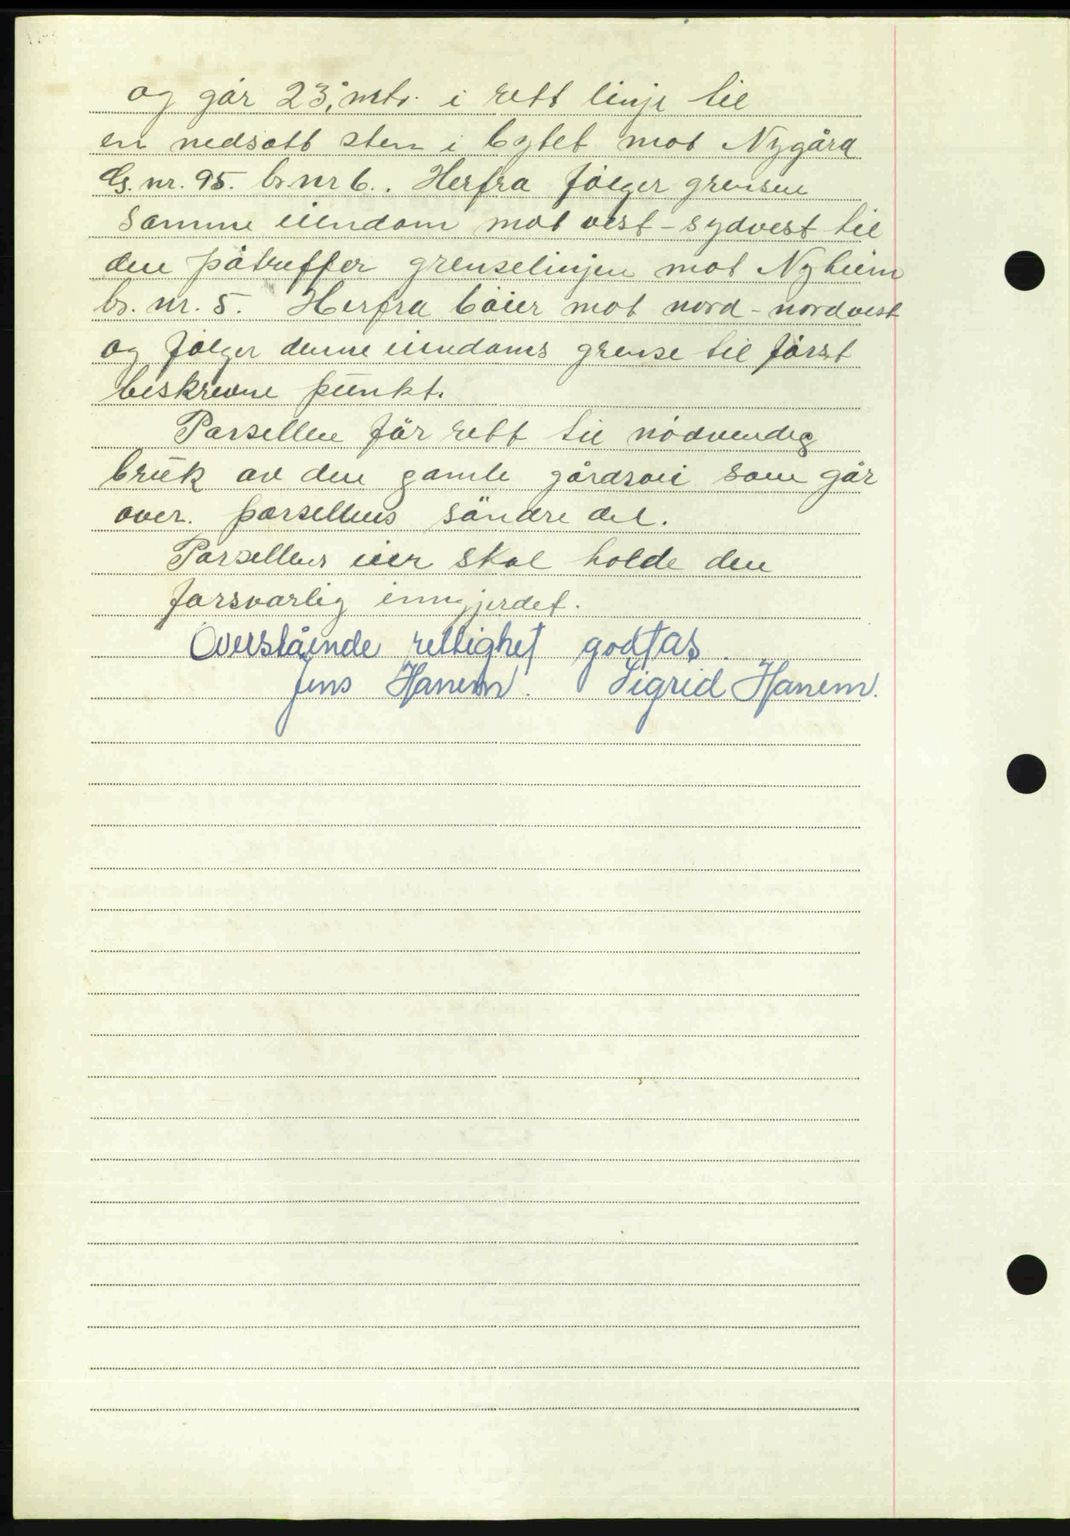 og går 23,° mtr. i rett linje til
en nedsatt sten i bytet mot Nygård
G. nr. 95. br. nr 6.. Herfra følger grensen
samme eiendom mot vest - sydvest til
den påtreffer grenselinjen mot Nyheim
br. nr. 5. Herfra bøier mot nord - nordvest
og følger denne eiendoms grense til først
beskrevne punkt.
Parsellen får rett til nødvendig
bruk av den gamle gårdsvei som går
over. parsellens søndre del.
Parsellens eier skal holde den
forsvarlig inngjerdet.
Overstående rettighet godtas.
Jens Hanem. Sigrid Hanem.